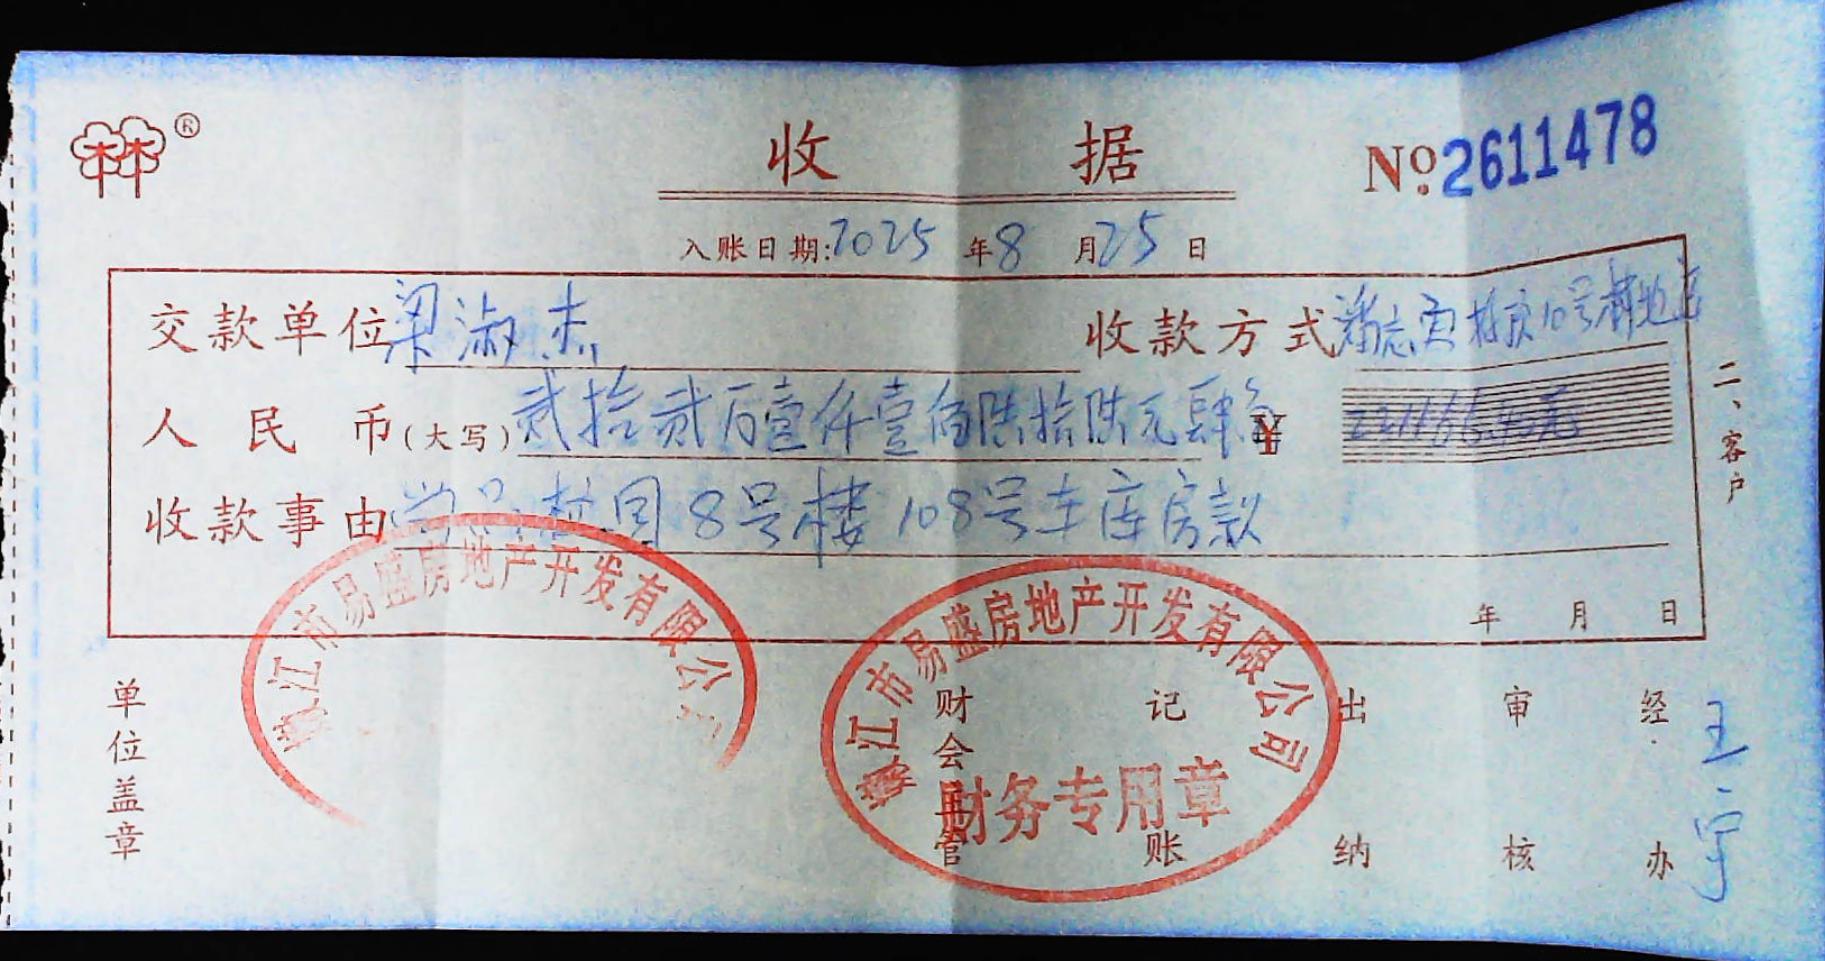 林®
收 据
№ 2611478
入账日期:2025年8月25日
交款单位 梁淑杰 收款方式 潘志
人民币(大写) 贰拾贰万壹仟壹佰陆拾陆元肆角 ¥ 221166.40元
收款事由 校园8号楼108号车库房款
年 月 日
二、客户
单位盖章 财会主管 记账 出纳 审核 经办 王宇
江市易盛房地产开发有限公司
江市易盛房地产开发有限公司
财务专用章